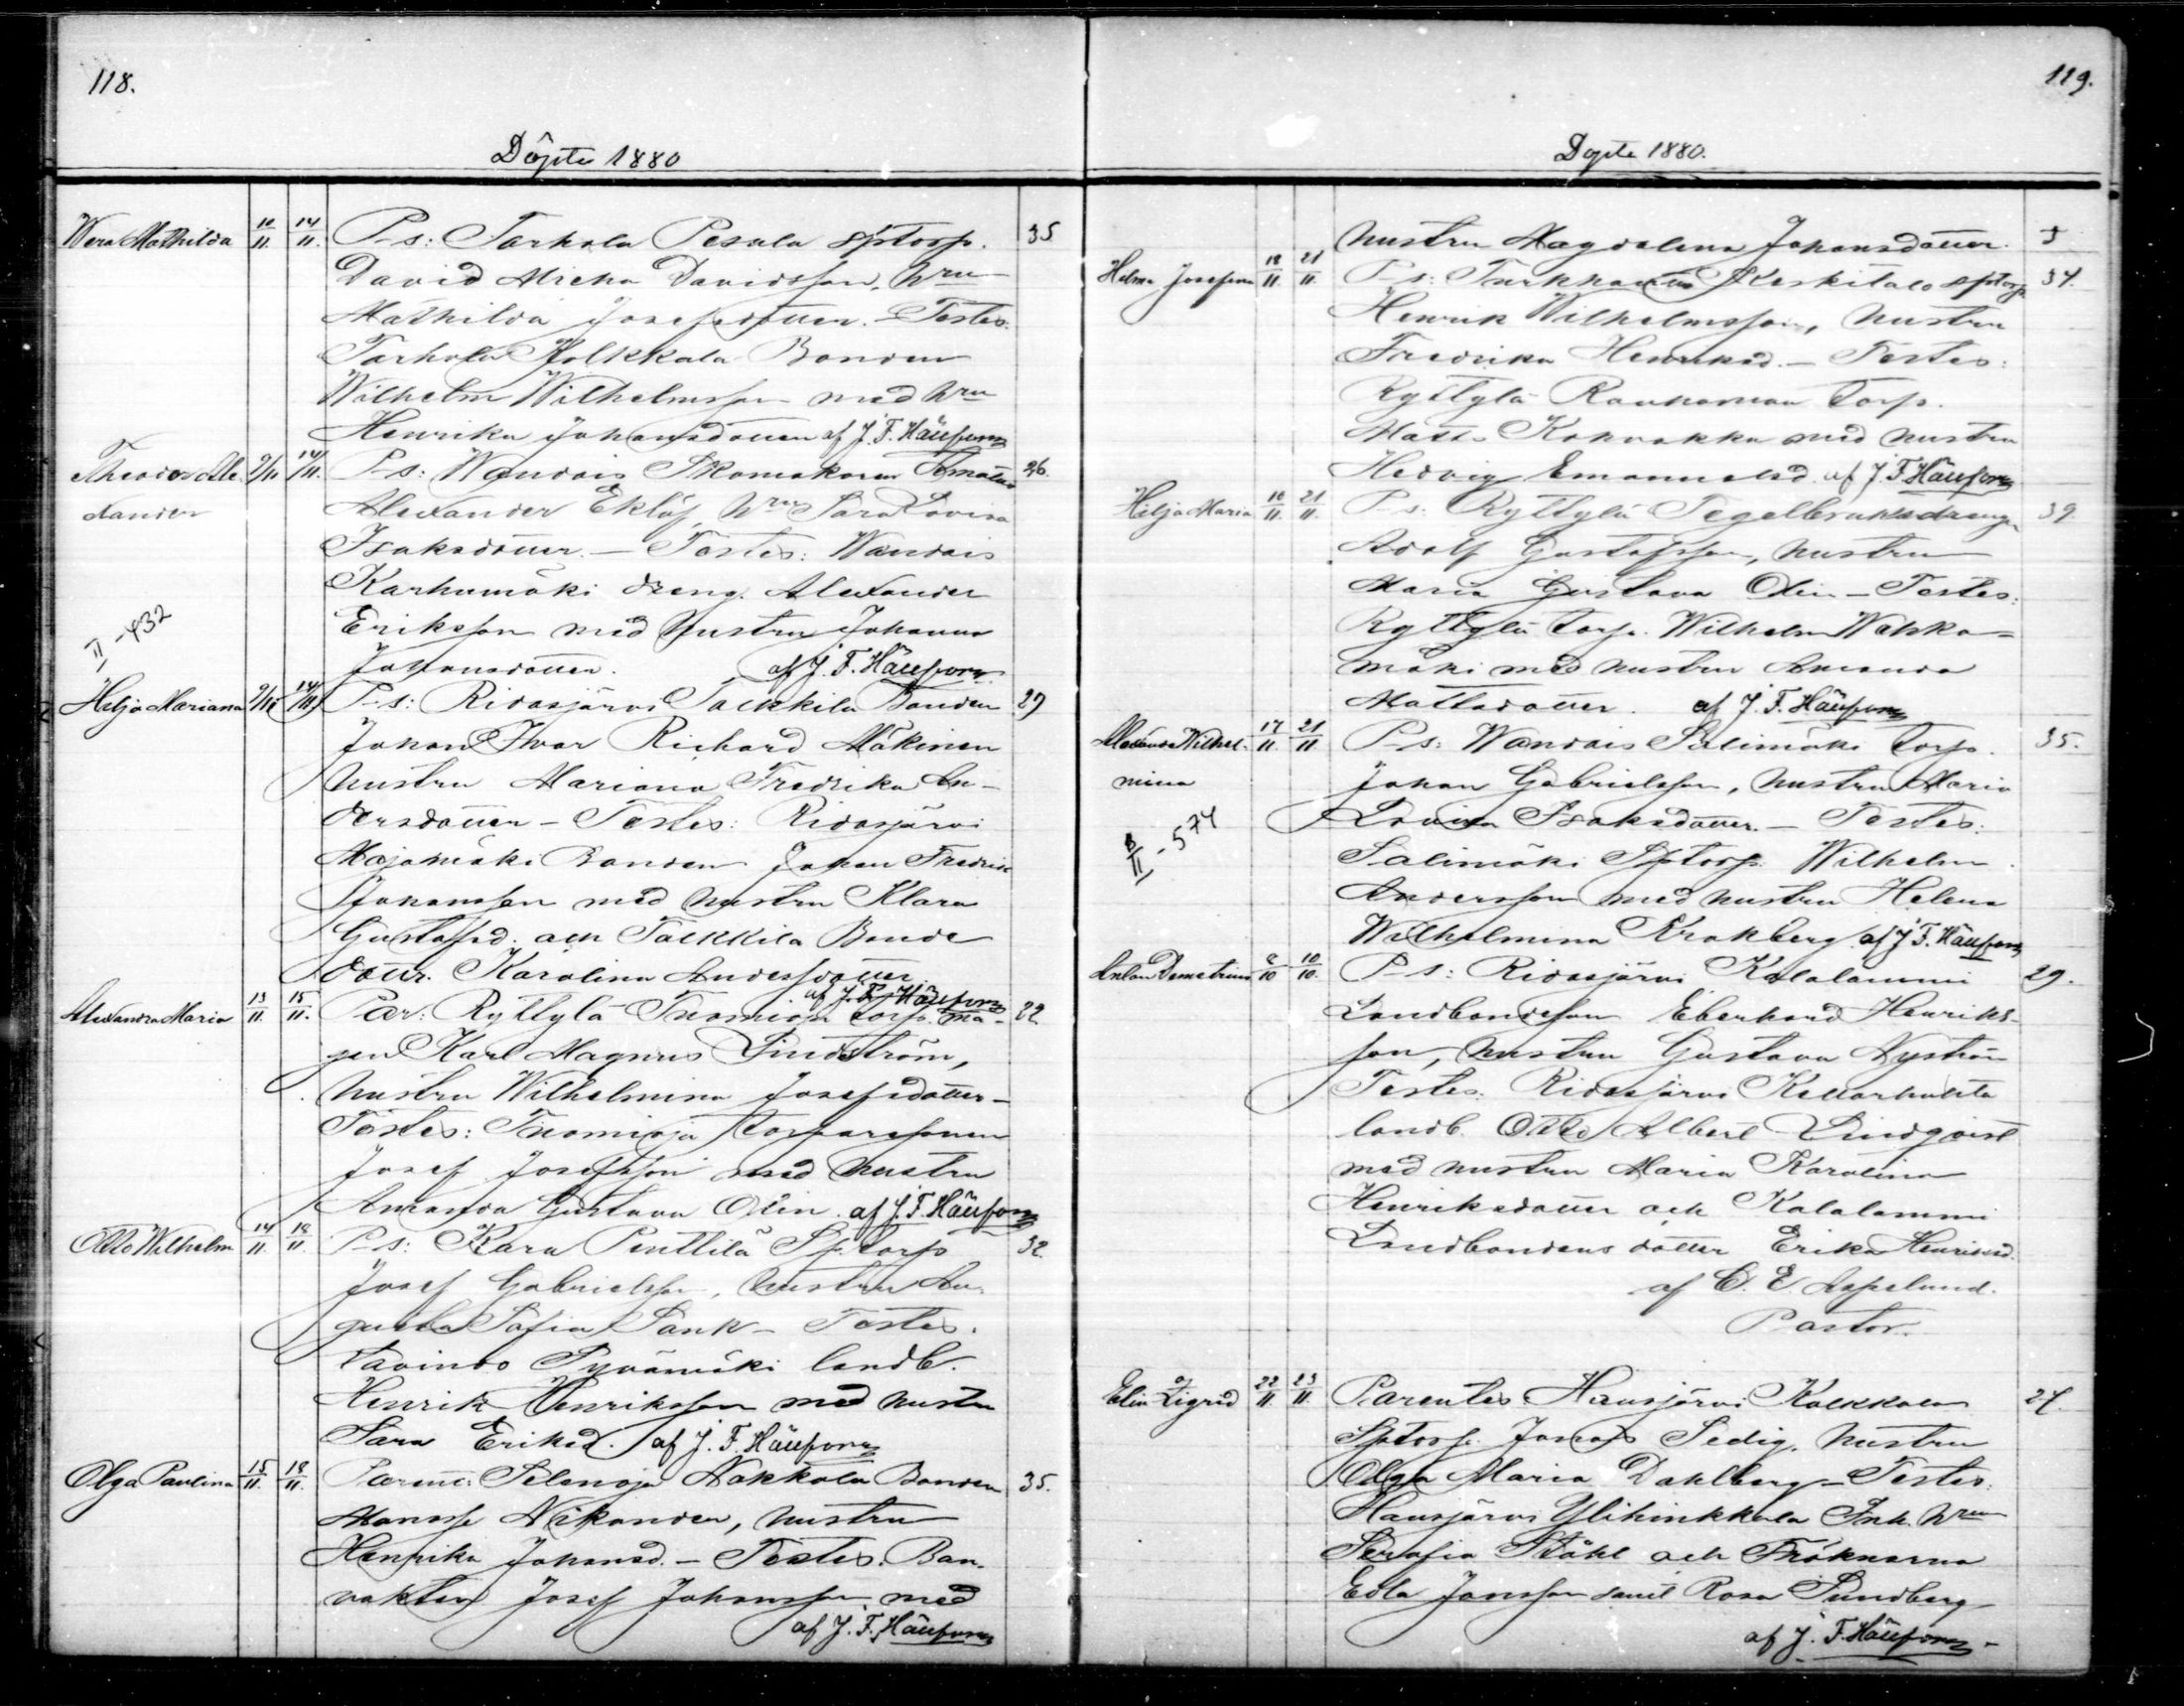 118.
Döpte 1880
Wera Mathilda 10/11. 14/11. P-s: Torhola Pesula Sptorp. 35
David Micka Davidsson, hru
Mathilda Josefsdotter. - Testes:
Torhola Bonden
Wilhelm Wilhelmsson med hru
Henrika Johansdotter af J. F. Häufom
Theodor Ale- 9/11 14/11. P-s: Wandois Skomakaren 26.
xander Alexander Eklöf, hru Sara Lovisa
Isaksdotter. - Testes: Wandois
Karhumäki dreng. Alexander
Eriksson med hustru Johanna
II - 432
Johansdotter. af J. F. Häufom
Hilja Mariana 9/11 14/11 P-s: Ridasjärvi Tackkila Bonden 27
Johan Iwar Richard Mäkinen
hustru Mariana Fredrika An-
dersdotter - Testes: Ridasjärvi
Majamäki Bonden Johan Fredrik
Johansson med hustru Klara
Gustafsd. och Tackkila Bonde
dottr. Karolina Andersdotter
af J. F. Häufom
Alexandra Maria 13/11. 15/11. Par: Ryttylä Tuomioja torp. må- 22
gen Karl Magnus Lindström,
hustru Wilhelmina Josefsdotter -
Testes: Tuomioja torparesonen
Josef Josefsson med hustru
Amanda Gustava Odin. af J. F. Häufom
Otto Wilhelm 14/11. 18/11. P-s: Kara Penttilä Sptorp 32.
Josef Gabrielsson, hustru Au-
gusta Sofia Lank - Testes.
landb.
Henrik Henriksson med hustru
Sara Eriksd. af J. F. Häufom
Olga Paulina 15/11. 18/11. Parent: Selanoja Nakkola Bonden 35.
Manasse Nikander, hustru
Henrika Johansd. - Testes. Ban-
vakten Josef Johansson med
af J. F. Häufom
119.
Döpte 1880.
hustru Magdalena Johansdotter.
Helma Josefina 18/11. 21/11. P-s: Turkhauta Keskitalo Sptorp 34.
Henrik Wilhelmsson, hustru
Fredrika Henriksd. - Testes:
Ryttylä Rauhamaa torp.
Matts Koknokka med hustru
Hedvig Emanuelsd. af J. F. Häufom
Hilja Maria 16/11. 21/11. P-s. Ryttylä Tegelbruksdreng 39
Adolf Gustafsson, hustru
Maria Gustava Odin - Testes:
Ryttylä torp. Wilhelm Wahka-
mäki med hustru Amanda
Mattsdotter. af J. F. Häufom
Alexandra Wilhel- 17/11. 21/11 P-s: Wandois Salimäki torp. 35.
mina Johan Gabrielsson, hustru Maria
Lovisa Isaksdotter. - Testes:
B/II - 574
Salimäki Sptorp. Wilhelm
Andersson med hustru Helena
Wilhelmina Krakberg af J. F. Häufom
Anton Demetrius 8/10 10/10. P-s: Ridasjärvi Kalalammi 29.
Landbondeson Eberhard Henriks-
son, hustru Gustava Nyström
Testes. Ridasjärvi Kellarhuhta
landb. Otto Albert Lindqvist
med hustru Maria Karolina
Henriksdotter och Kalalammi
Landbondens dotter Erika Henriksd.
af C. E. Aspelund.
Pastor.
Elin Sigrid 22/11. 23/11. Parentes Hausjärvi Kalkkola 27.
Sptorp. Jonas Sedig, hustru
Olga Maria Dahlberg - Testes:
Hausjärvi Ylihinkkala Inh. hru
Serafia Ståhl och Fröknarna
Edla Jansson samt Rosa Sundberg
af J. F. Häufom -